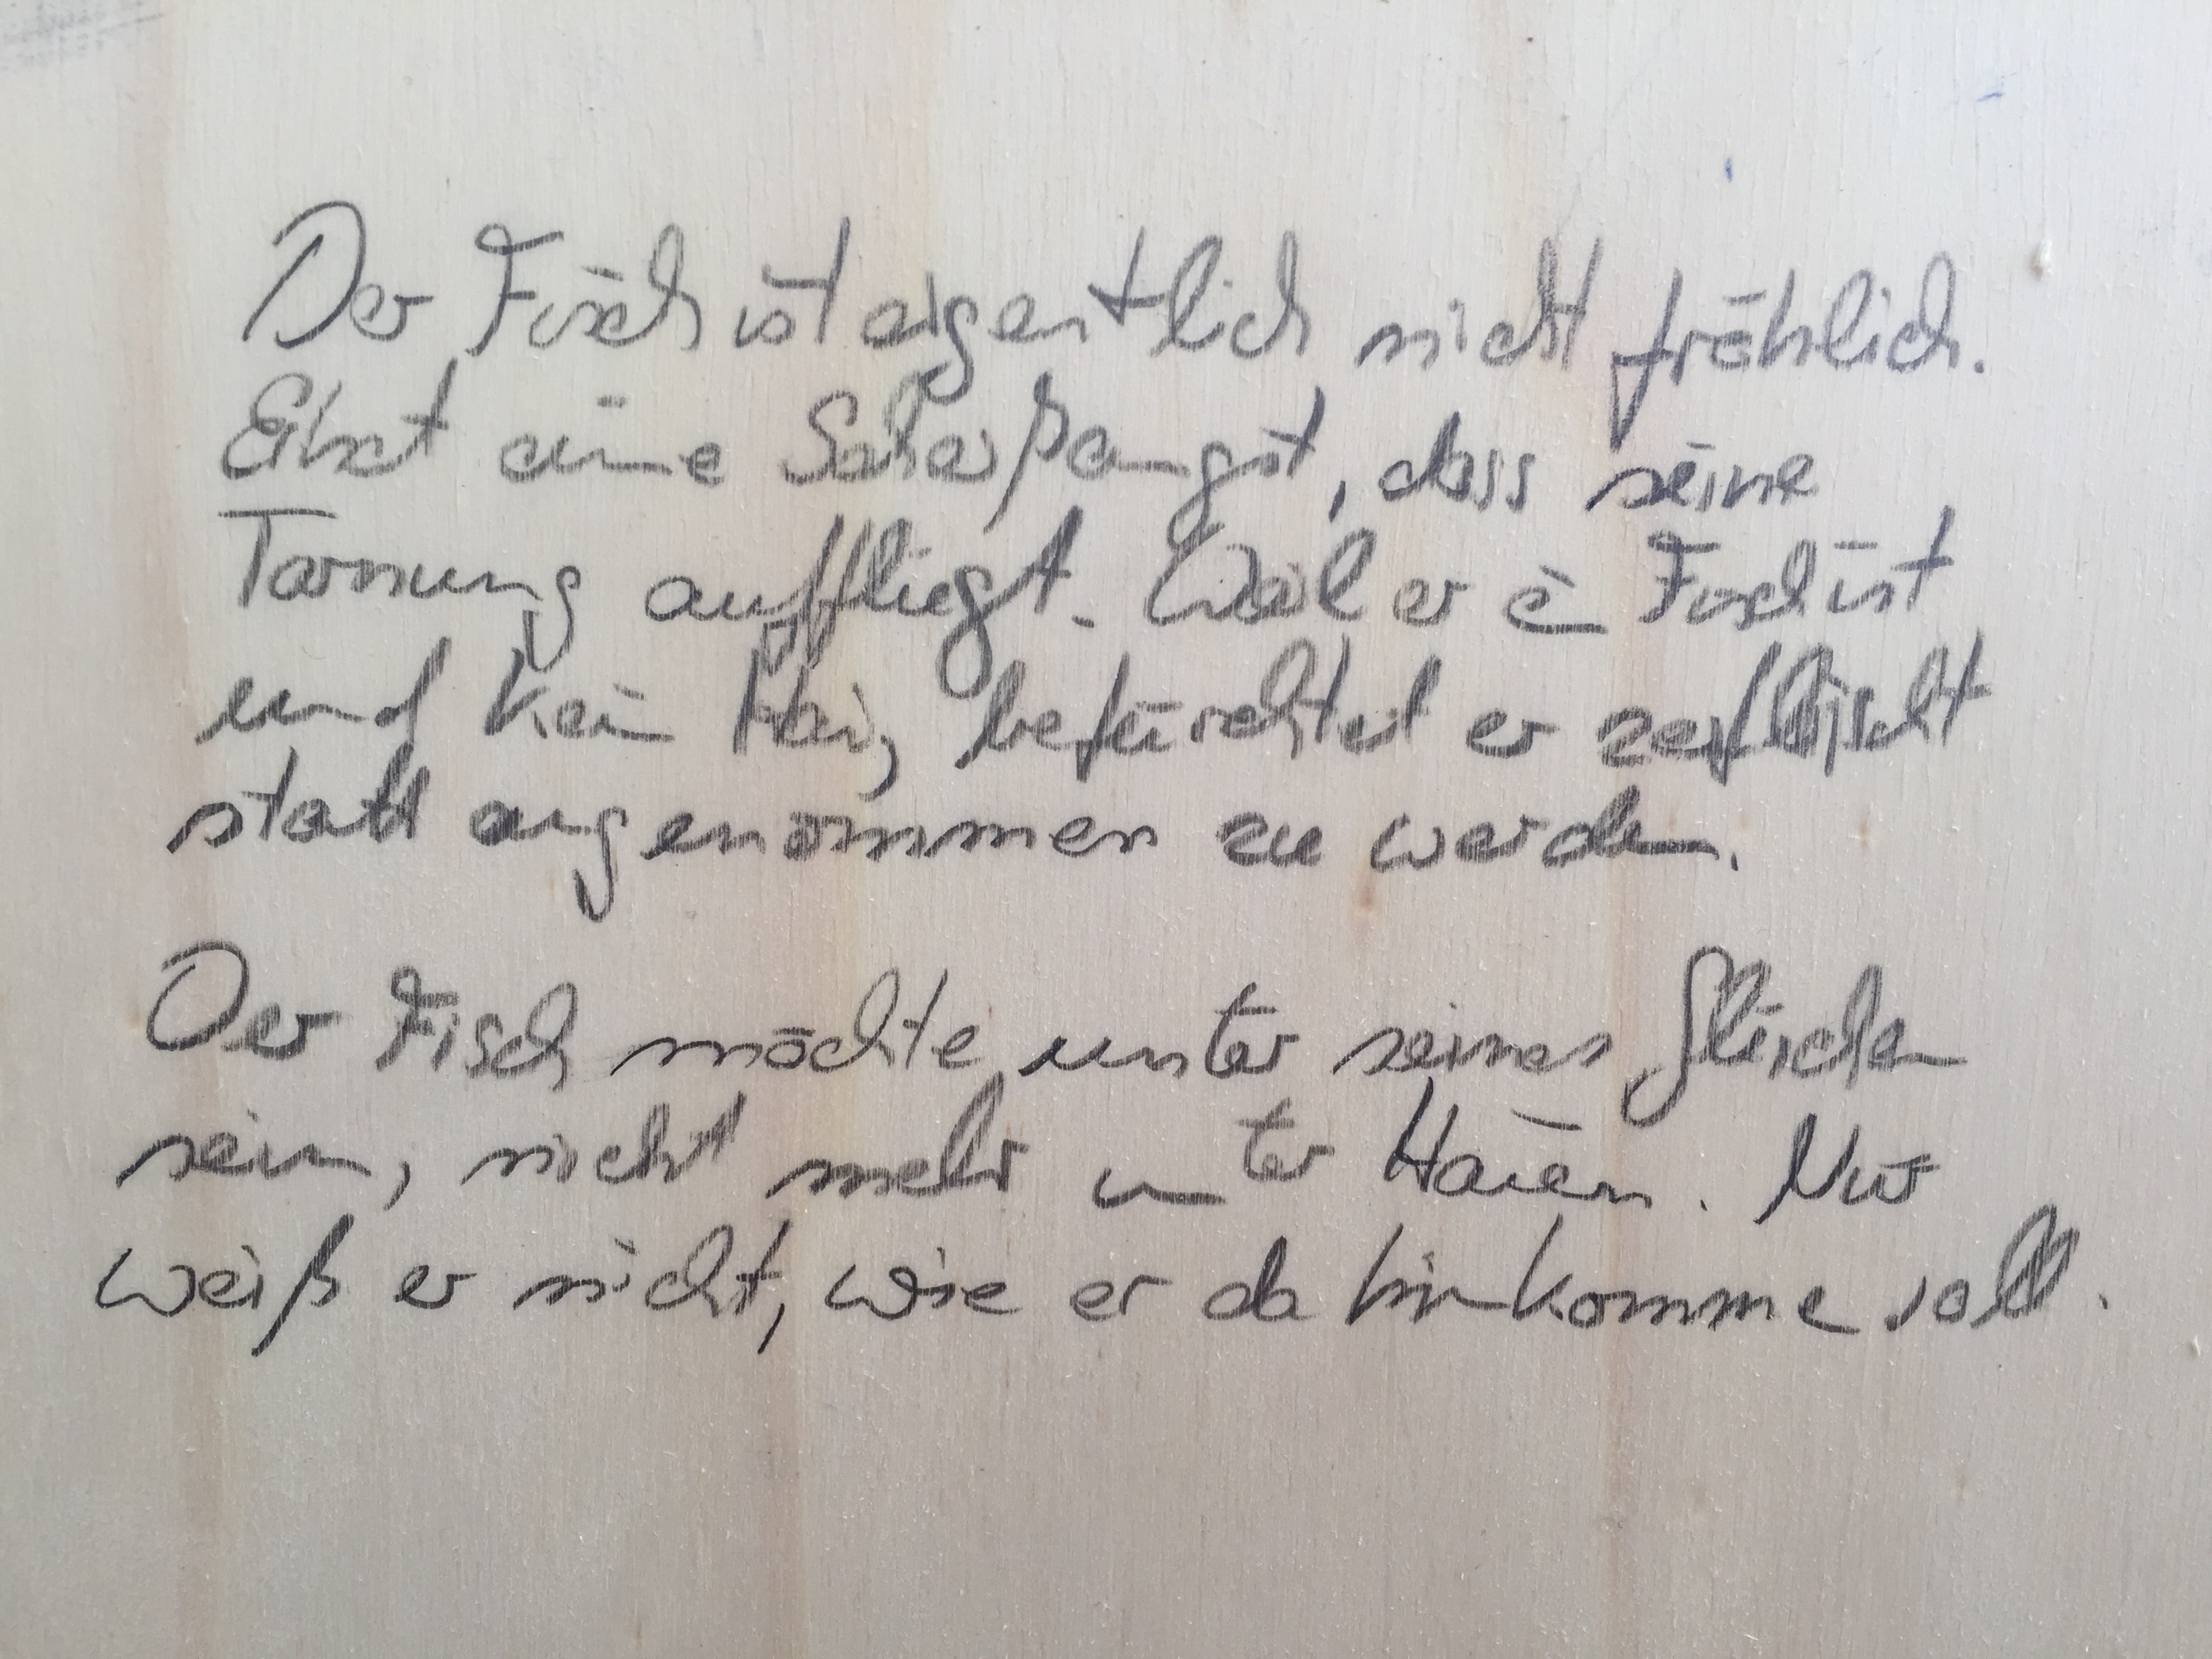 Der Fisch ist eigentlich nicht fröhlich.
Er hat eine Scheißangst, dass seine
Tarnung auffliegt. Weil er ein Fisch ist
und kein Hai, befürchtet er zerfleischt
statt angenommen zu werden.
Der Fisch möchte unter seines Gleichen
sein, nicht mehr unter Haien. Nur
weiß er nicht, wie er da hinkomme soll.